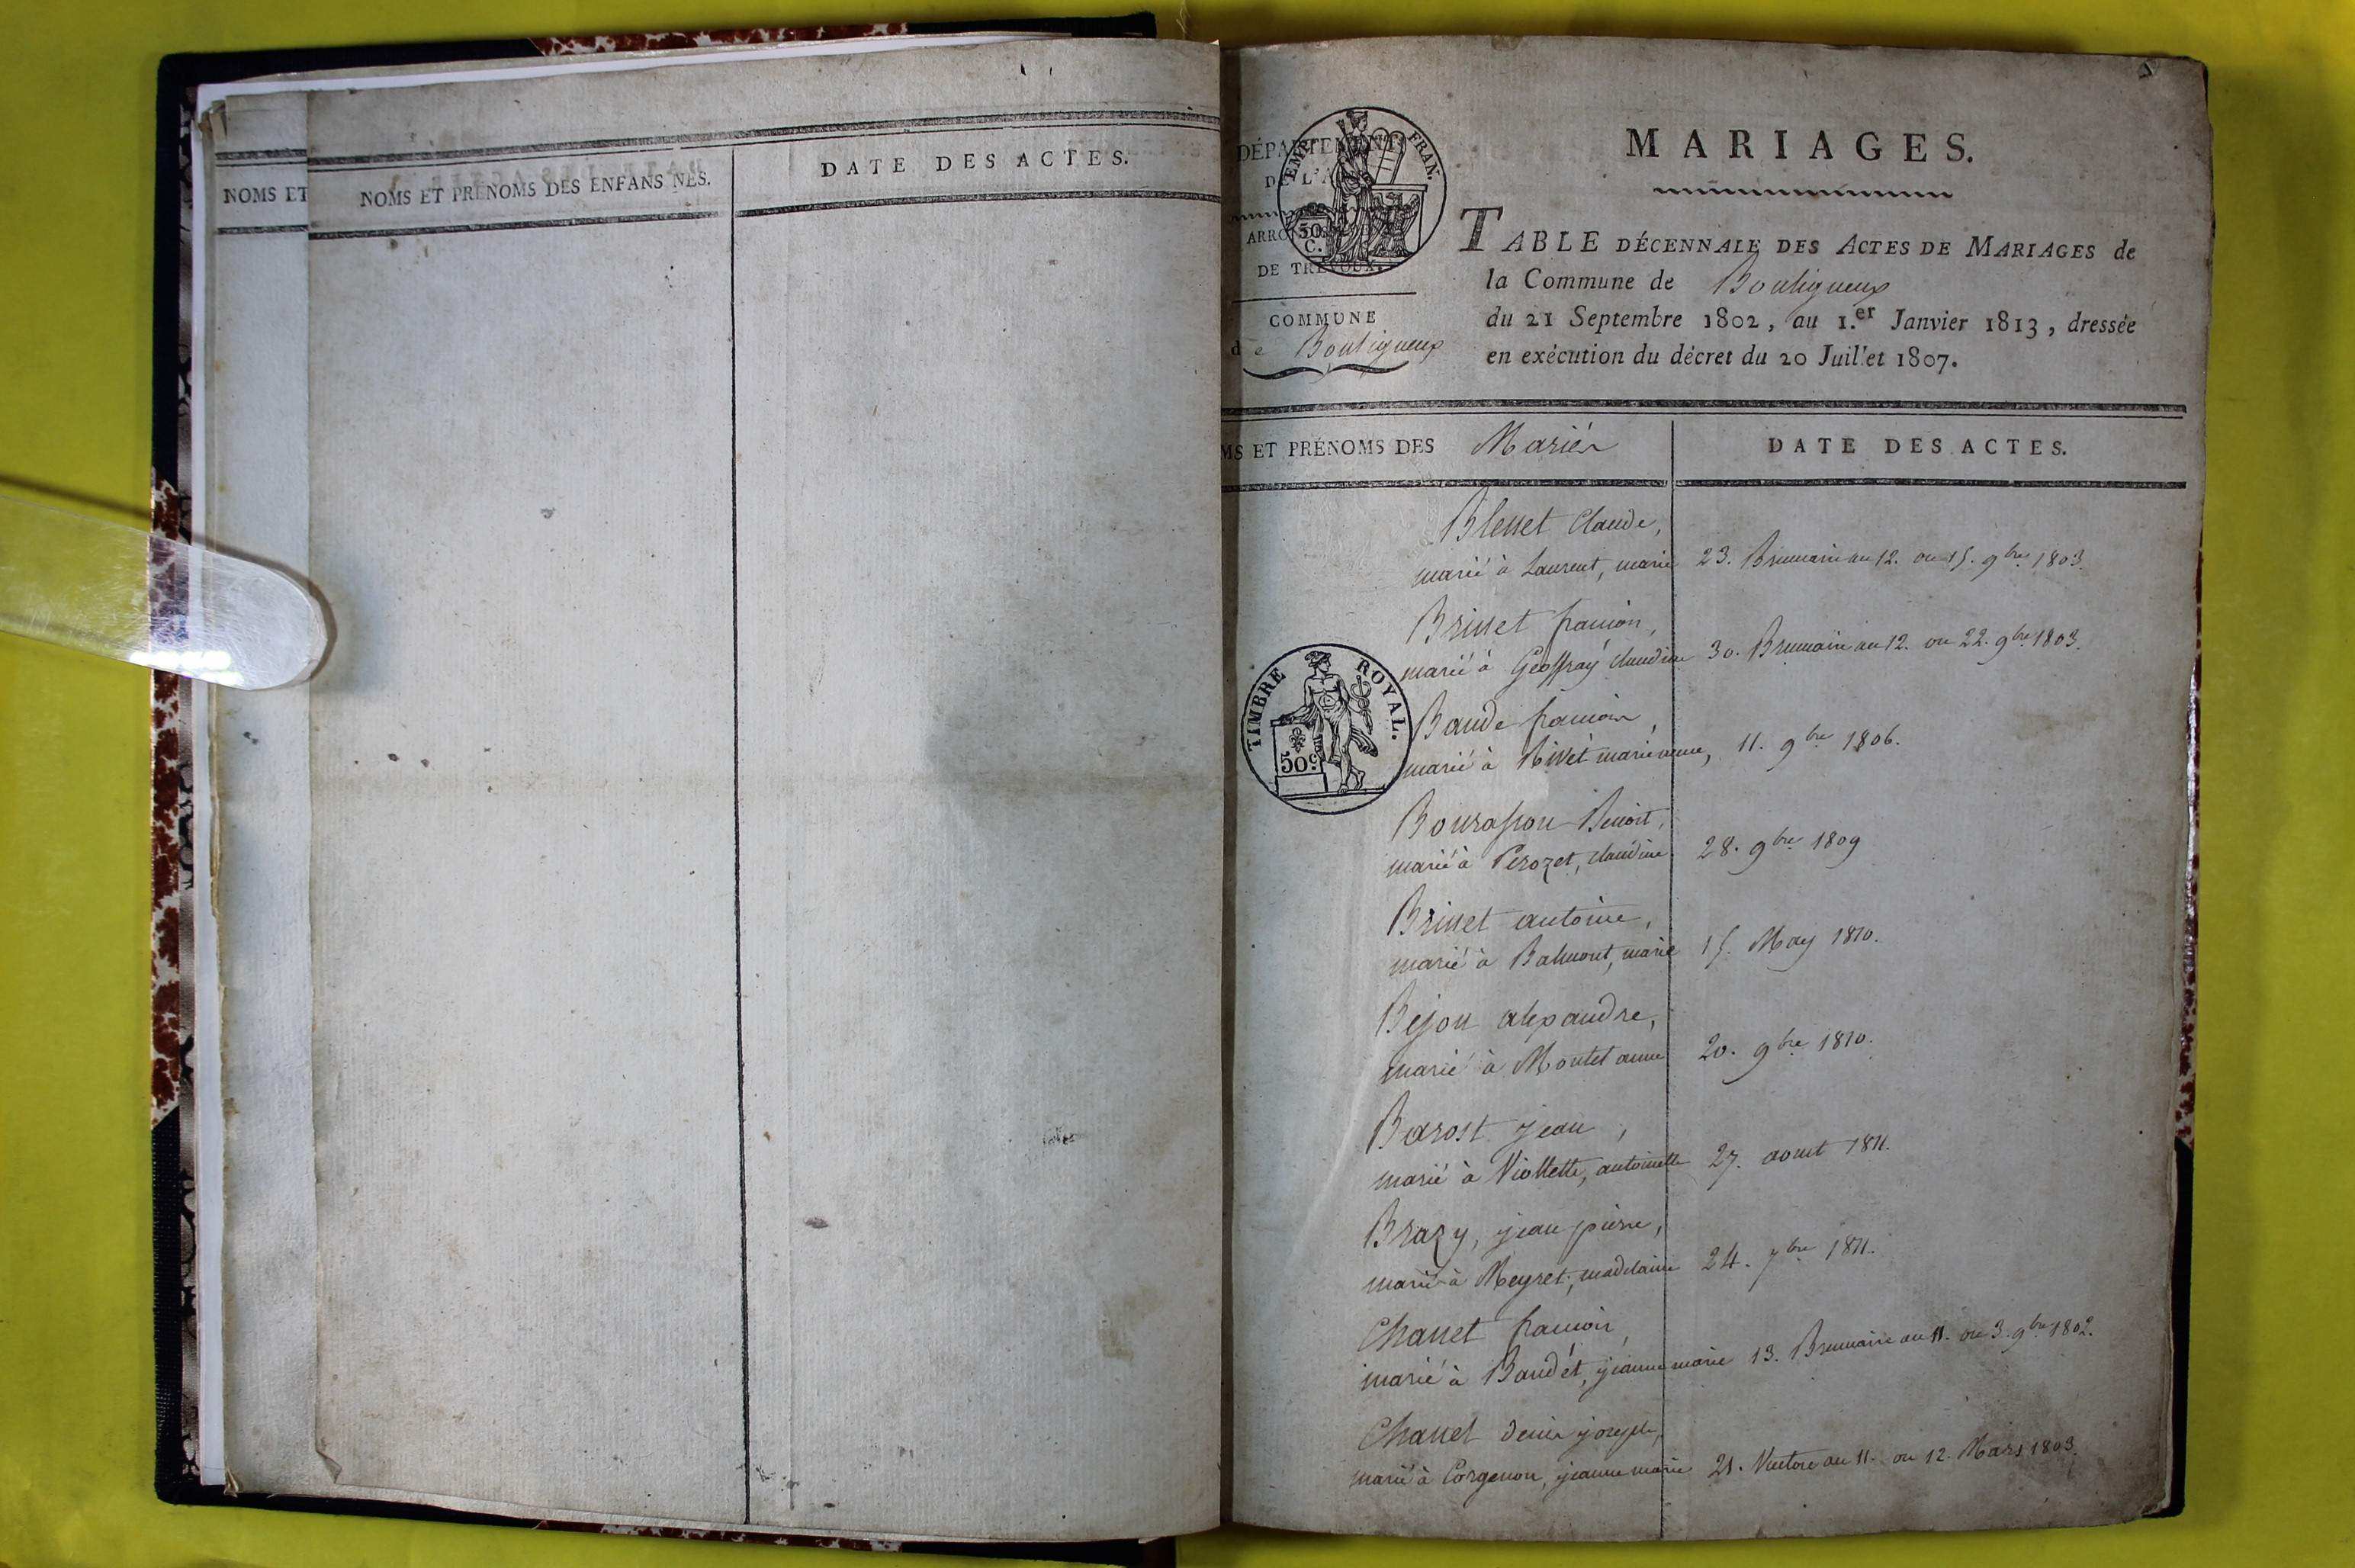 NOMS ET
NOMS ET PRÉNOMS DES ENFANS NÉS.
DATE DES ACTES.
DÉPARTEMENT
DE L'A
ARRO
DE TRÉVOUX.
COMMUNE
de Bouligneux
EMP. FRAN.
50
C.
MARIAGES.
TABLE DÉCENNALE DES ACTES DE MARIAGES de
la Commune de Bouligneux
du 21 Septembre 1802, au 1.er Janvier 1813, dressée
en exécution du décret du 20 Juillet 1807.
MS ET PRÉNOMS DES Mariés
DATE DES ACTES.
TIMBRE ROYAL.
50c
Blenet Claude,
marié à Laurent, marie 23. Brumaire an 12. ou 15. 9bre 1803.
Brinet francois,
marié à Geoffray claudine 30. Brumaire an 12. ou 22. 9bre 1803.
Baude francois,
marié à Rivet marie anne, 11. 9bre 1806.
Bourasson Benoit,
marié à Perozet, claudine 28. 9bre 1809
Brinet antoine,
marié à Balmont, marie 15. May 1810.
Bejon alexandre,
marié à Montet anne 20. 9bre 1810.
Barost jean,
marié à Viollette, antoinette 27. aout 1811.
Brazy, jean pierre,
marié à Meyret, madelaine 24. 7bre 1811.
Chanet francois,
marié à Baudet, jeanne marie 13. Brumaire an 11. ou 3. 9bre 1802.
Chanet denis joseph,
marié à Corgenon, jeanne marie 21. Ventose an 11. ou 12. Mars 1803.